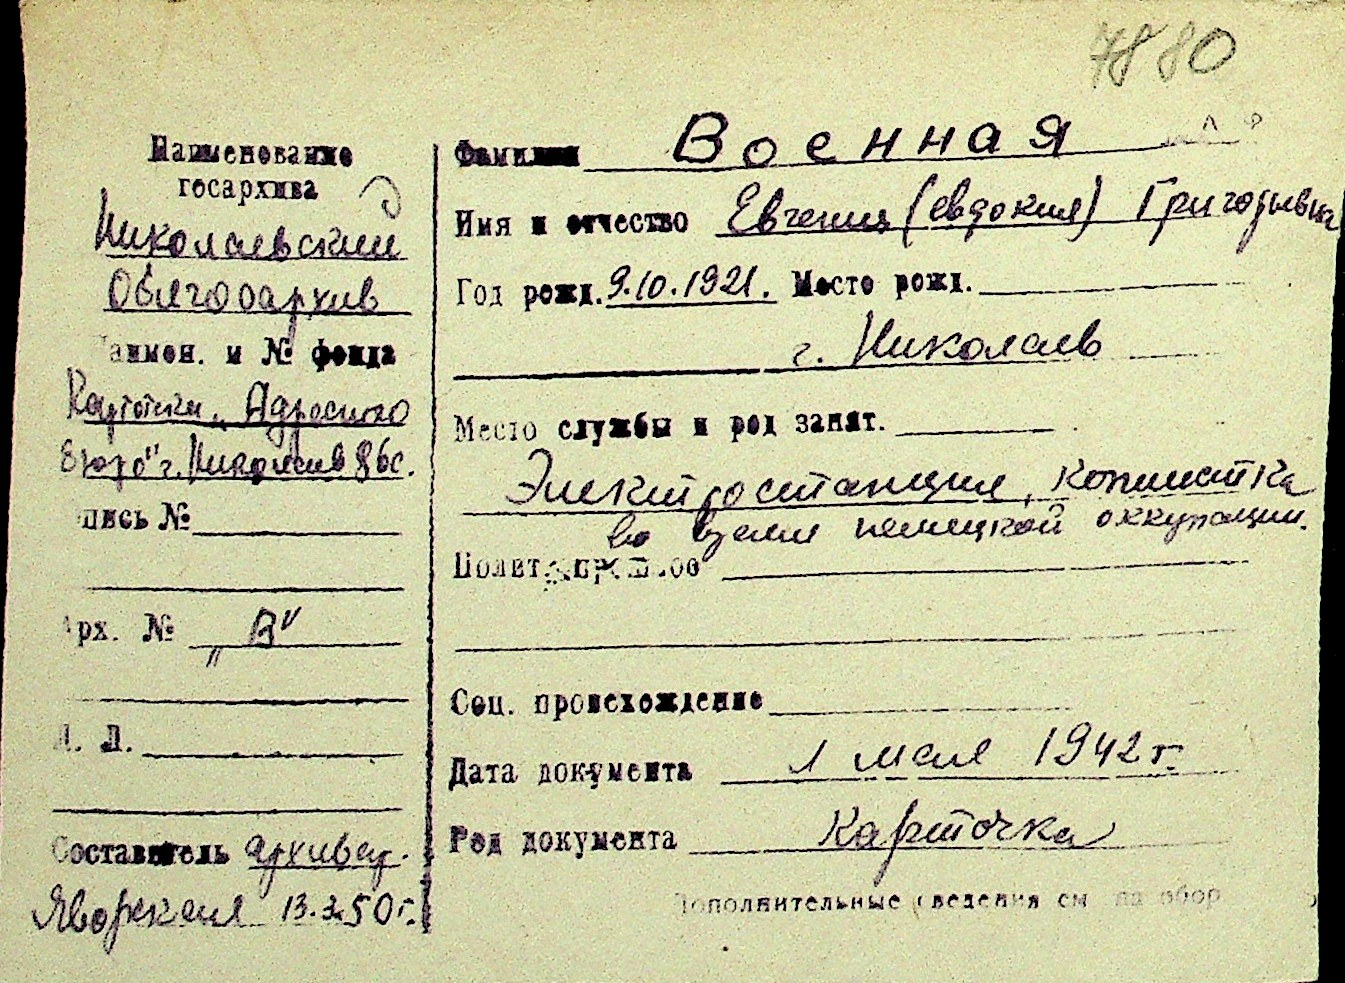 7880
Наименование
госархива
Николаевский
Облгосархив
Наимен. и № фонда
Картотека „Адресного
бюро" г. Николаев
Опись №
Арх. № „В"
Л. Л.
Составитель архивар.
Яворская 13.3.50 г.
Фамилия Военная
Имя и отчество Евгения (Евдокия) Григорьевна
Год рожд. 9.10.1921. Место рожд.
г. Николаев
Место службы и род занят.
Электростанция, копиистка
во время немецкой оккупации.
Полит. прошлое
Соц. происхождение
Дата документа 1 мая 1942 г.
Род документа Карточка
Дополнительные сведения см. на обор